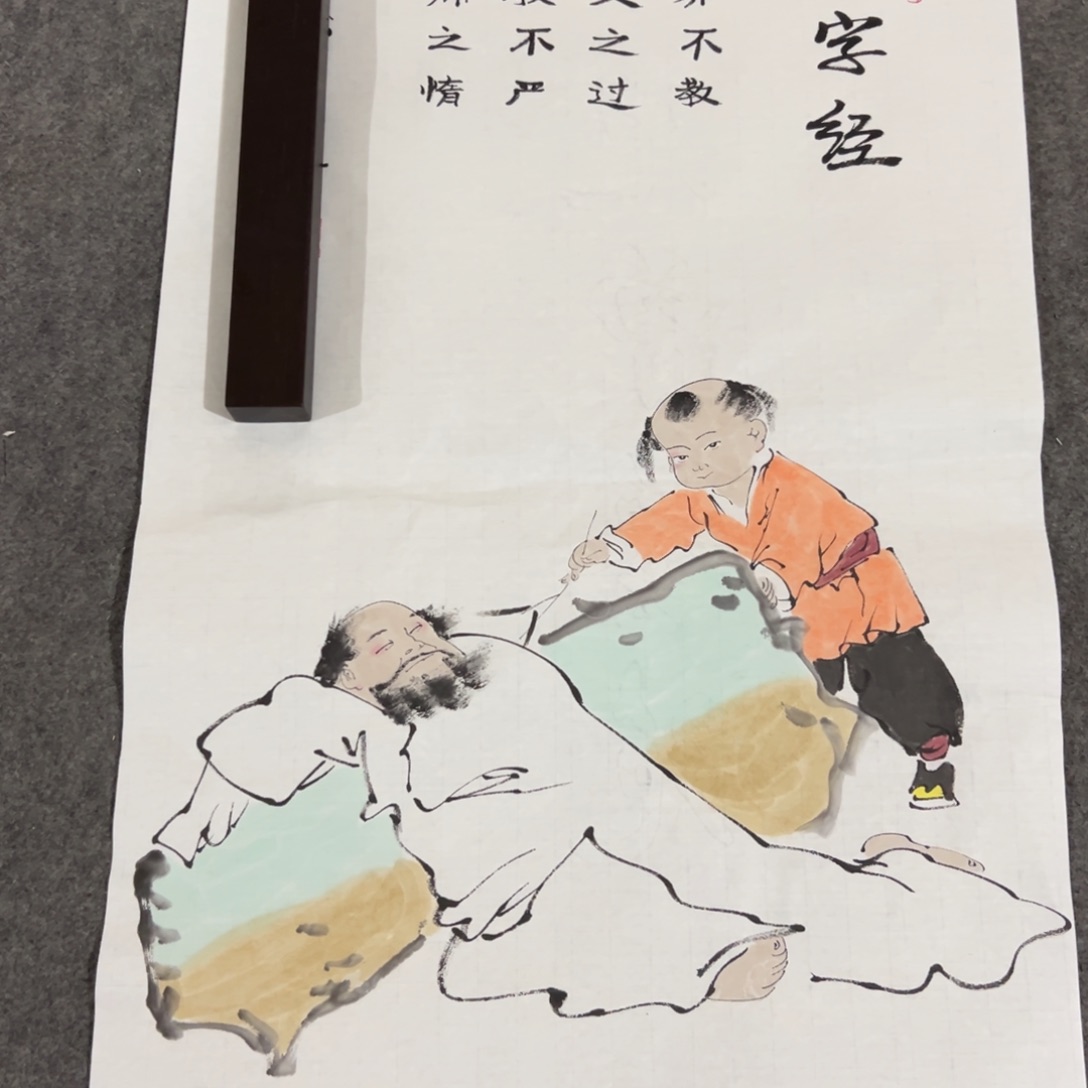 字经
不教
之过
不严
之惰